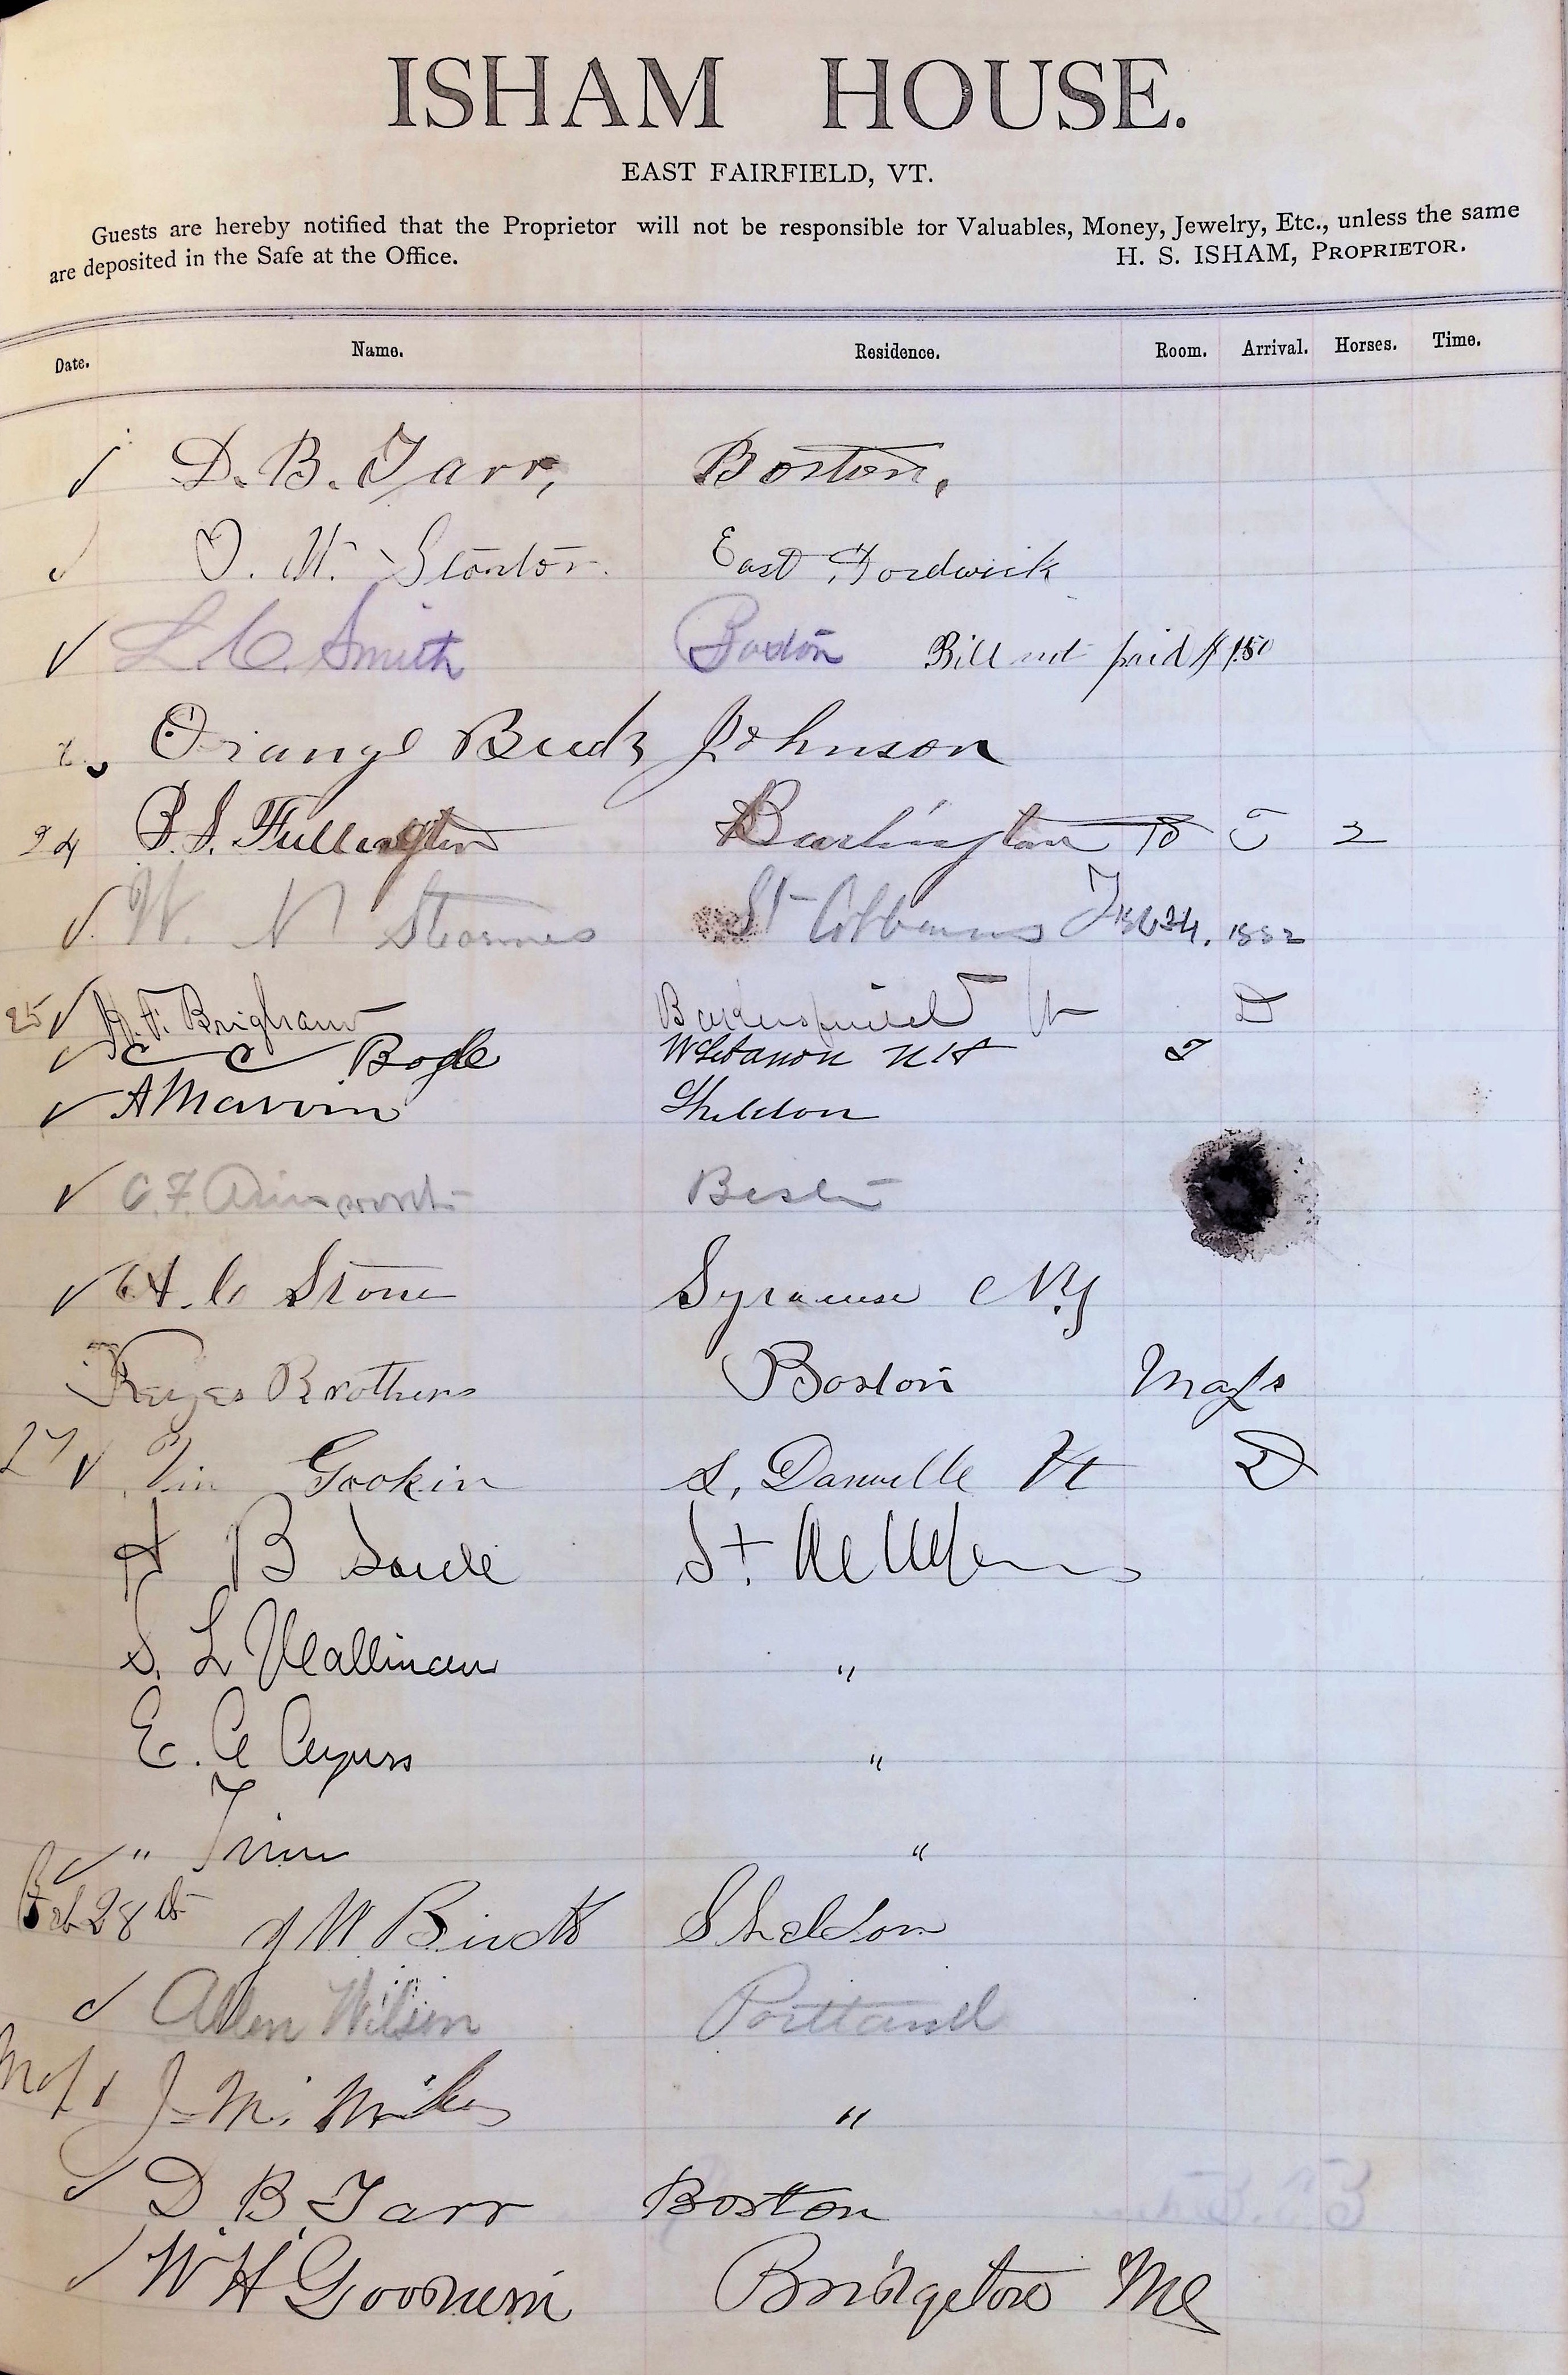 ISHAM HOUSE.
EAST FAIRFIELD, VT.
Guests are hereby notified that the Proprietor will not be responsible for Valuables, Money, Jewelry, Etc., unless the same
are deposited in the Safe at the Office. H. S. ISHAM, PROPRIETOR.
Date. Name. Residence. Room. Arrival. Horses. Time.
D. B. Tarr, Boston,
O. W. Stantor. East Hardwick
L. C. Smith Boston Bill not paid $ 1.50
Orange Buck Johnson
24 B. S. Fullington Burlington 2
W. N Stearnes St Albans Feb 24, 1882
25 H. F. Brigham Bakersfield Vt D
C C Bogle W Lebanon N H
A Marvin Sheldon
C. F. Ainsworth Boston
H. C Stone Syracuse N.Y
Keyes Brothers Boston Mass
27 Tim Gookin S, Danville Vt D
H B Soule St. Albans
S. L Wallinan "
E. A Ayers "
" Trim "
Feb 28th Sheldon
Allen Wilson Portland
J. M. "
D. B. Tarr Boston
W H Goodwin Bridgeton Me